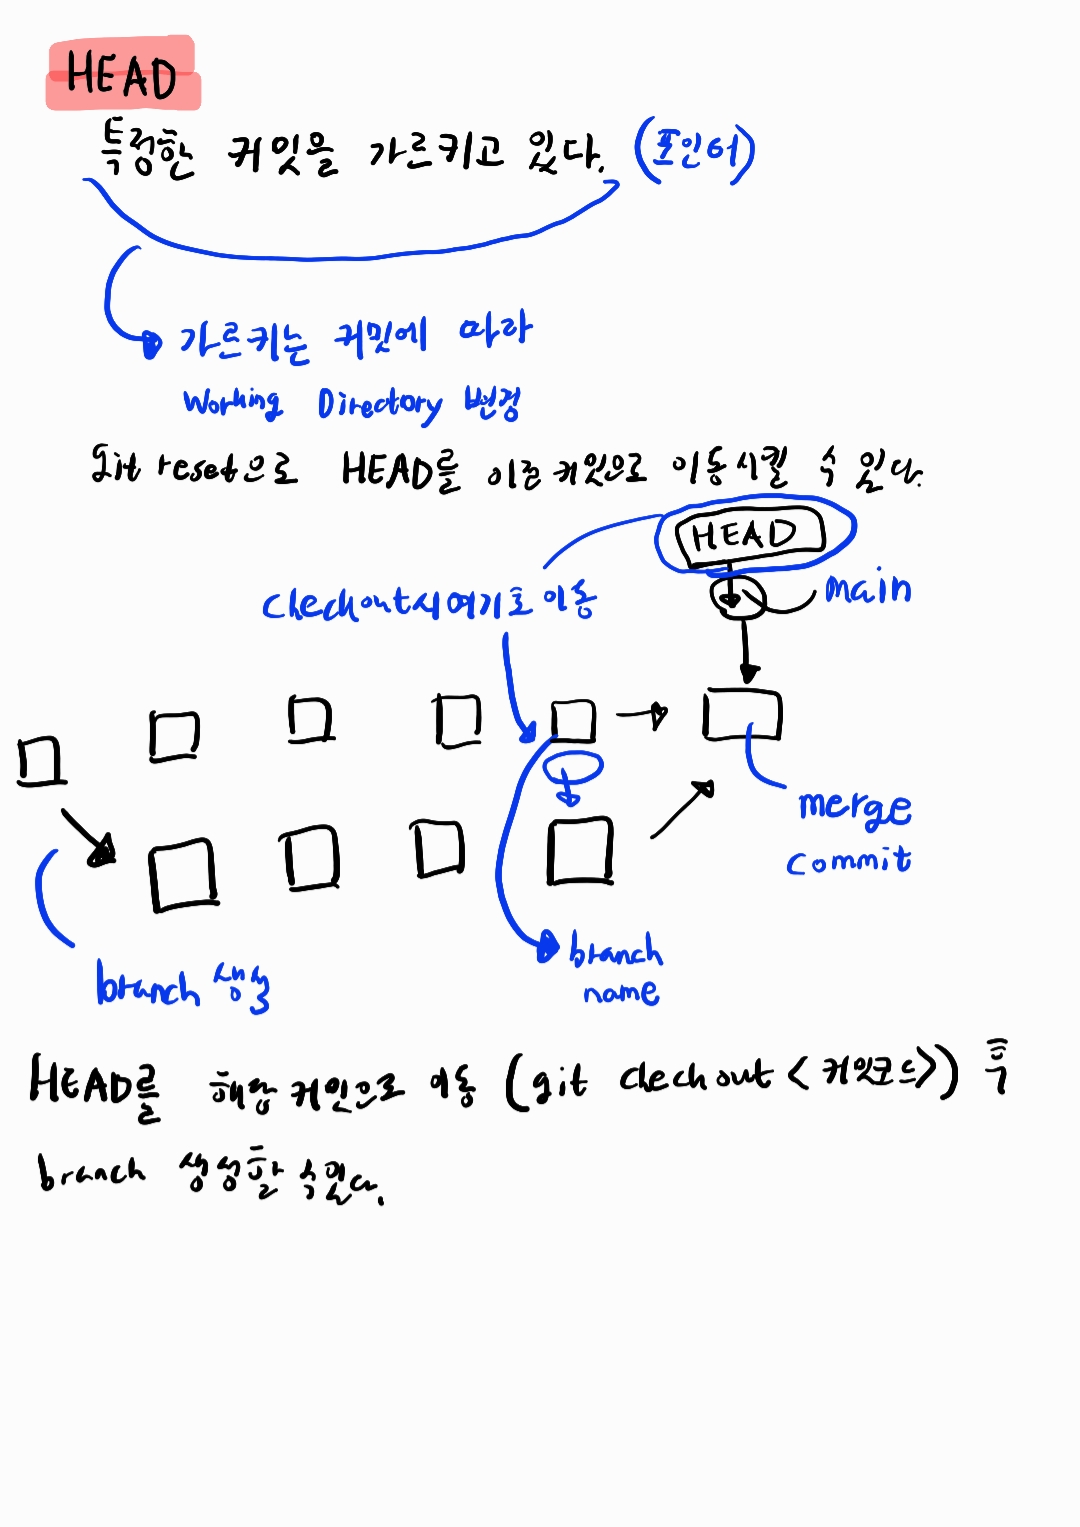 HEAD
특정한 커밋을 가르키고 있다. (포인터)
가르키는 커밋에 따라
Working Directory 변경
git reset으로 HEAD를 이전 커밋으로 이동시킬 수 있다.
HEAD
main
checkout시 여기로 이동
merge
commit
branch
name
branch 생성
HEAD를 해당 커밋으로 이동 (git checkout <커밋코드>) 후
branch 생성할 수 있다.